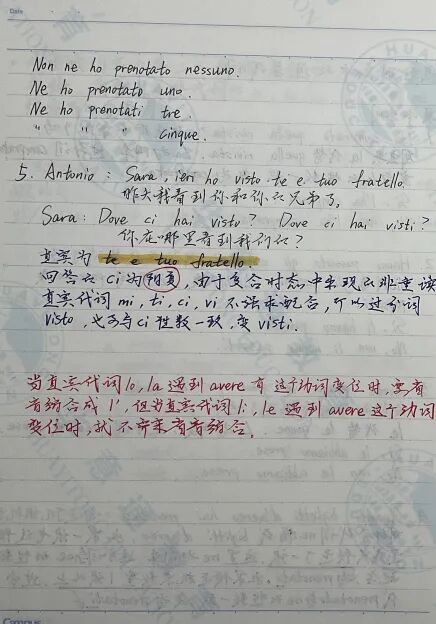 Date
Non ne ho prenotato nessuno.
Ne ho prenotato uno.
Ne ho prenotati tre.
" " " cinque.
5. Antonio: Sara, ieri ho visto te e tuo fratello.
昨天我看到你和你的兄弟了。
Sara: Dove ci hai visto? Dove ci hai visti?
你在哪里看到我们的?
直宾为 te e tuo fratello.
回答的 ci 为阳复,由于复合时态中出现的非重读
直宾代词 mi, ti, ci, vi 不强求配合,所以过分词
visto,也可与 ci 性数一致,变 visti.
当直宾代词 lo, la 遇到 avere 有 这个动词变位时,要省
音缩合成 l',但当直宾代词 li, le 遇到 avere 这个动词
变位时,就不需省音缩合。
Campus